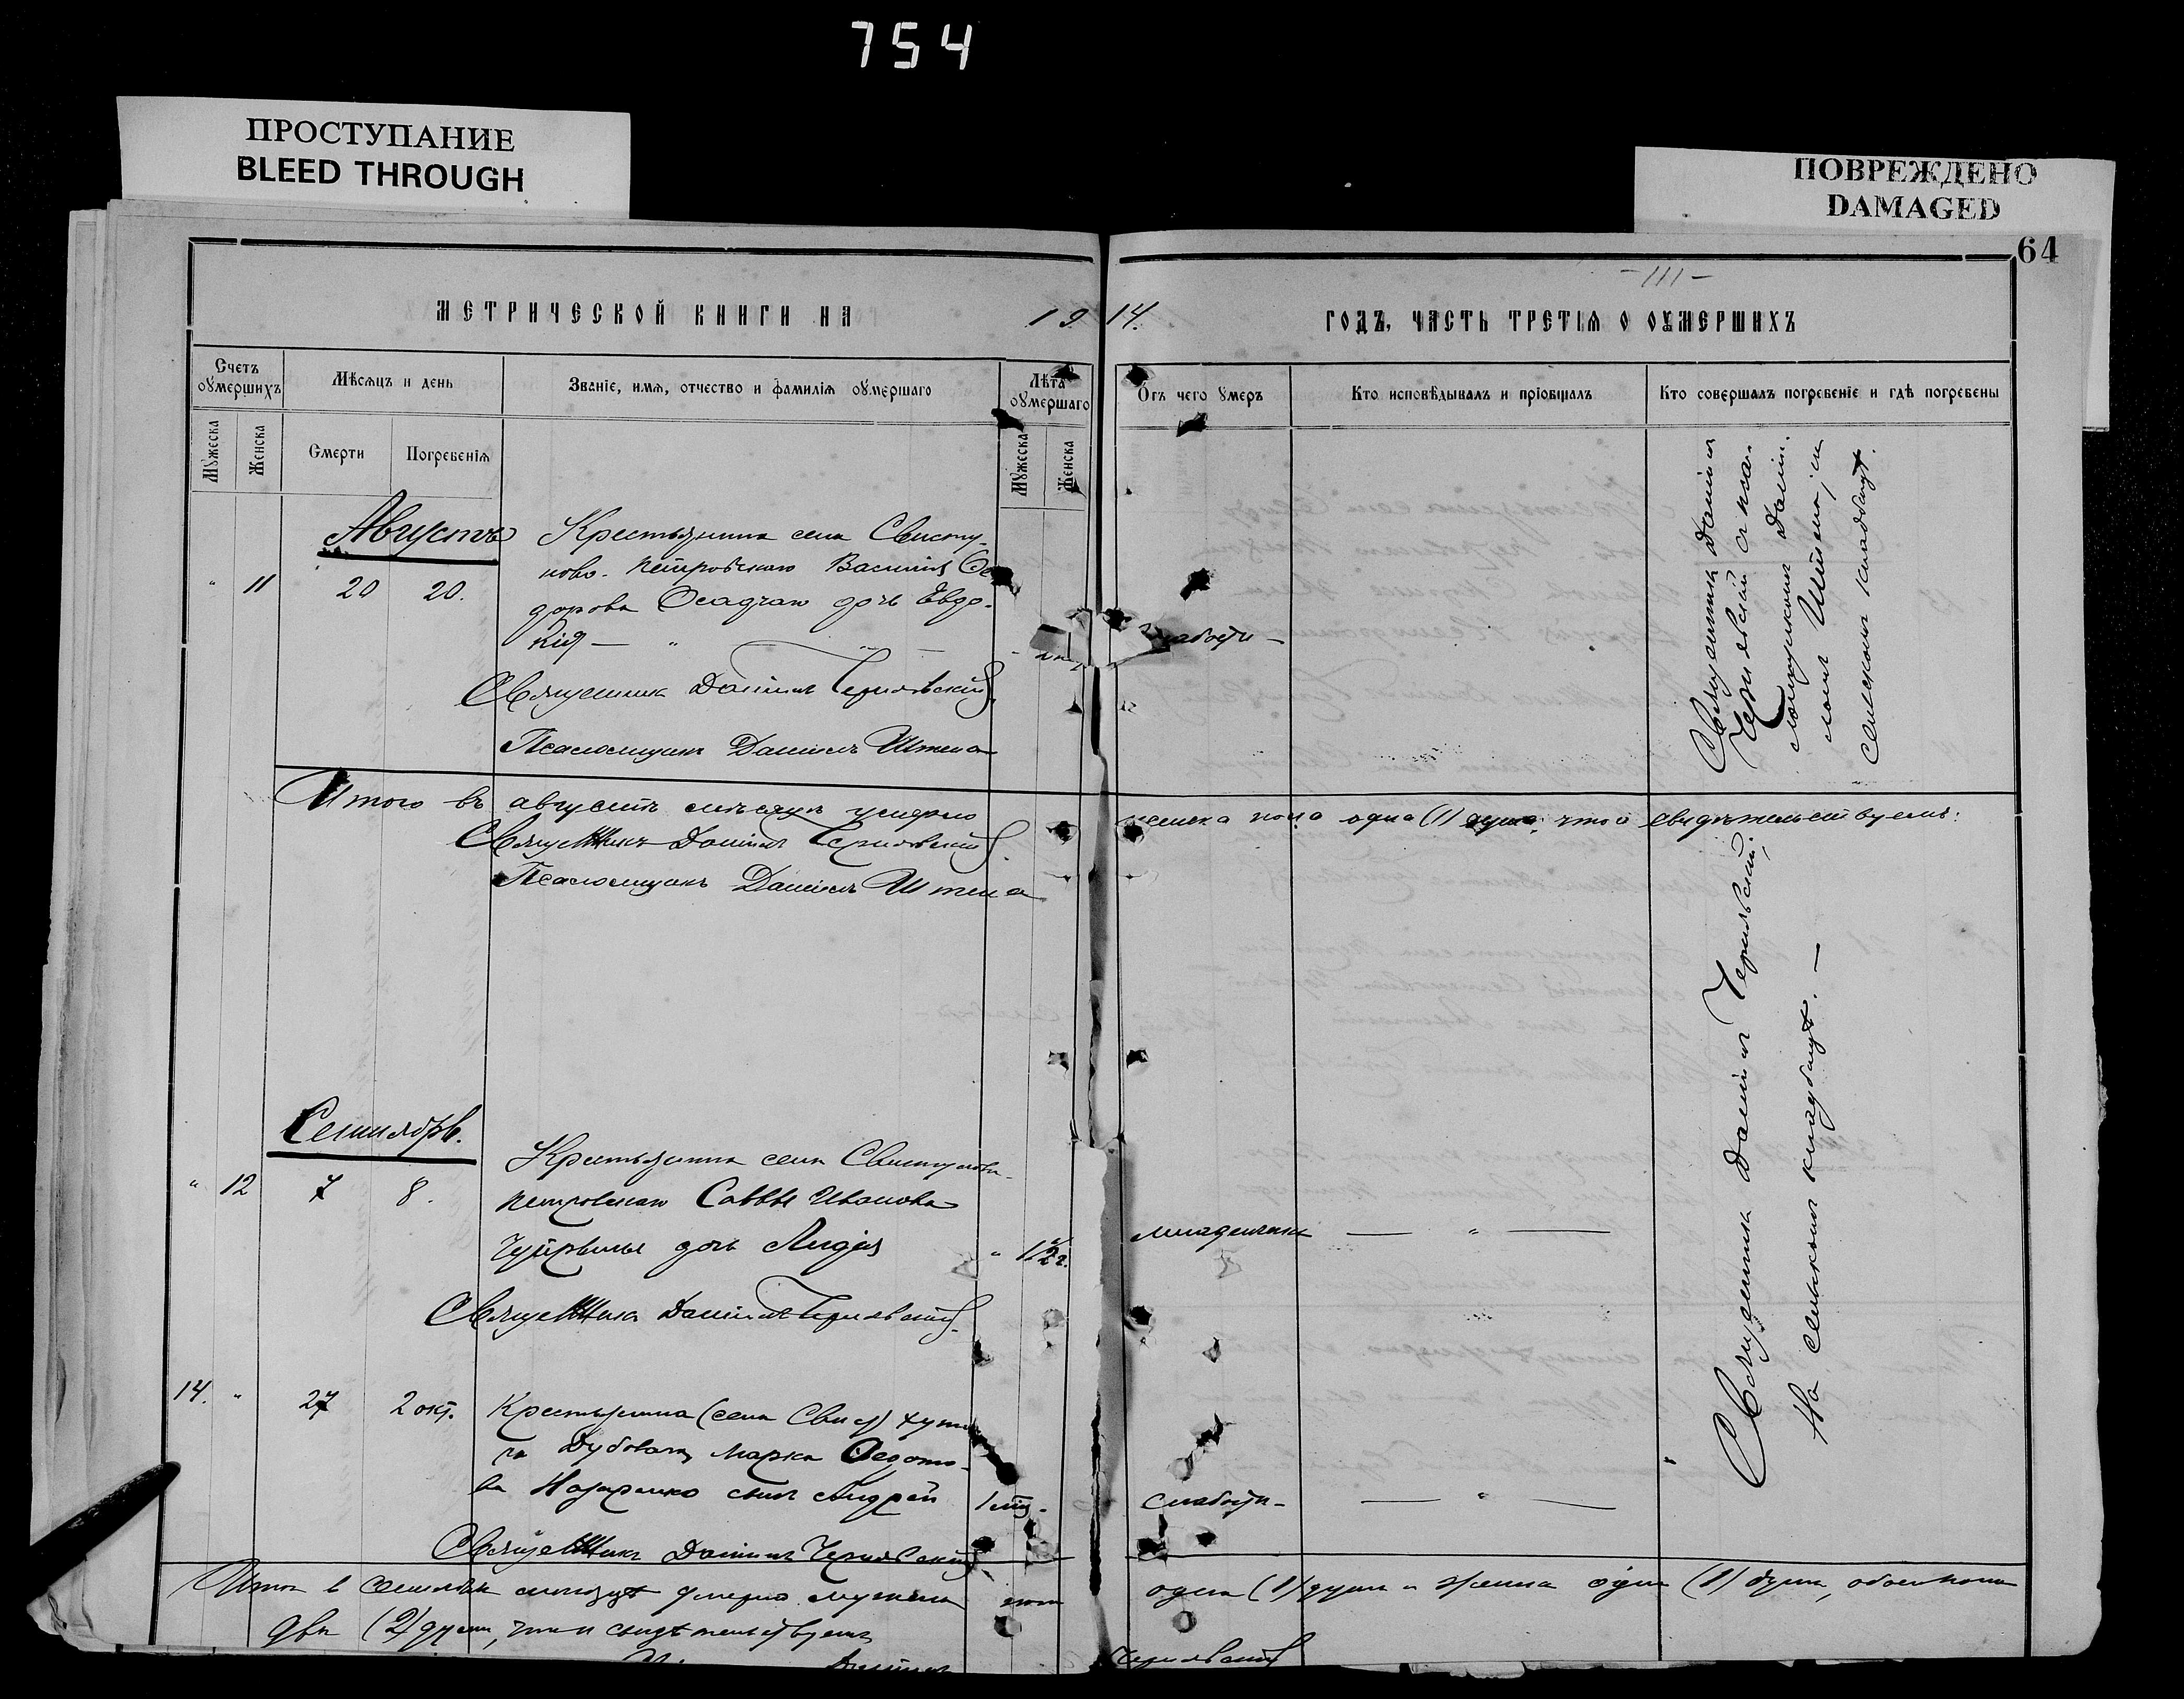 754
ПРОСТУПАНИЕ
BLEED THROUGH
ПОВРЕЖДЕНО
DAMAGED
64
-III-
МЕТРИЧЕСКОЙ КНИГИ НА 1914. ГОДЪ, ЧАСТЬ ТРЕТІѦ О ОУМЕРШИХЪ
Счетъ оумершихъ
Мѣсѧцъ и день
Званіе, имѧ, отчество и фамиліѧ оумершаго
Лѣта оумершаго
Отъ чего умеръ
Кто исповѣдывалъ и пріобщалъ
Кто совершалъ погребеніе и гдѣ погребены
Мужеска
Женска
Смерти
Погребеніѧ
Мужеска
Женска
Августъ
" 11 20 20.
Крестьянина села Свисту-
ново-Петровскаго Василія Ѳе
дорова Осадчаго дочь Евдо-
кія — " "
слабости —
Священникъ Даніилъ Чернявскій.
Псаломщикъ Даніилъ Штепа
Священникъ Даніилъ
Чернявскій съ пса-
ломщикомъ Даніи-
ломъ Штепою, на
сельскомъ кладбищѣ.
Итого въ августѣ мѣсяцѣ умерло женска пола одна (1) душа, что и свидѣтельствуемъ:
Священникъ Даніилъ Чернявскій.
Псаломщикъ Даніилъ Штепа
Сентябрь.
" 12 7 8.
Крестьянина села Свистуново-
Петровскаго Саввы Иванова
дочь Лидія
" 1/2 г.
младенческ — " —
Священникъ Даніилъ Чернявскій.
14. " 27 2 окт.
Крестьянина (села Свист) хуто
ра Дубоваго Марка Ѳедото-
ва Назаренко сынъ Андрей
1 мѣс.
слабости — " —
Священникъ Даніилъ Чернявскій
Священникъ Даніилъ Чернявскій,
На сельскомъ кладбищѣ. —
Итого в сентябрѣ мѣсяцѣ умерло мужска пола одна (1) душа и женска одна (1) душа, обоего пола
двѣ (2) души, что и свидѣтельствуемъ
Даніилъ Чернявскій